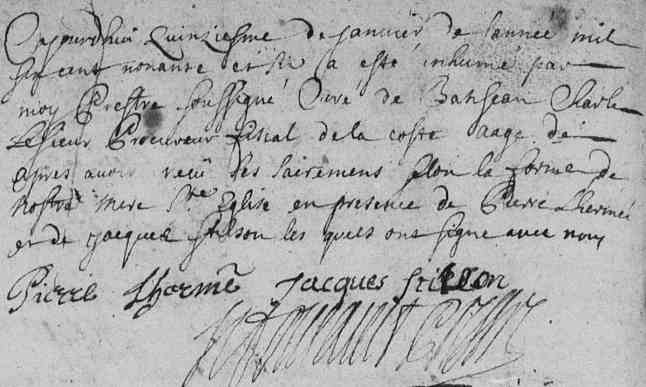 Aujourdhui quinziesme de janvier de lannée mil
six cent nonante et six a esté inhumé par
moy Prestre soussigné Curé de Batiscan Charle
Lesieur Procureur fiscal de la coste aage de
apres avoir receu les sacremens selon la forme de
nostre mere Ste Eglise en presence de Pierre Lhermé
et de jacques stilson les quels ont signe avec nous
Pierre Lhormé Jacques stilson